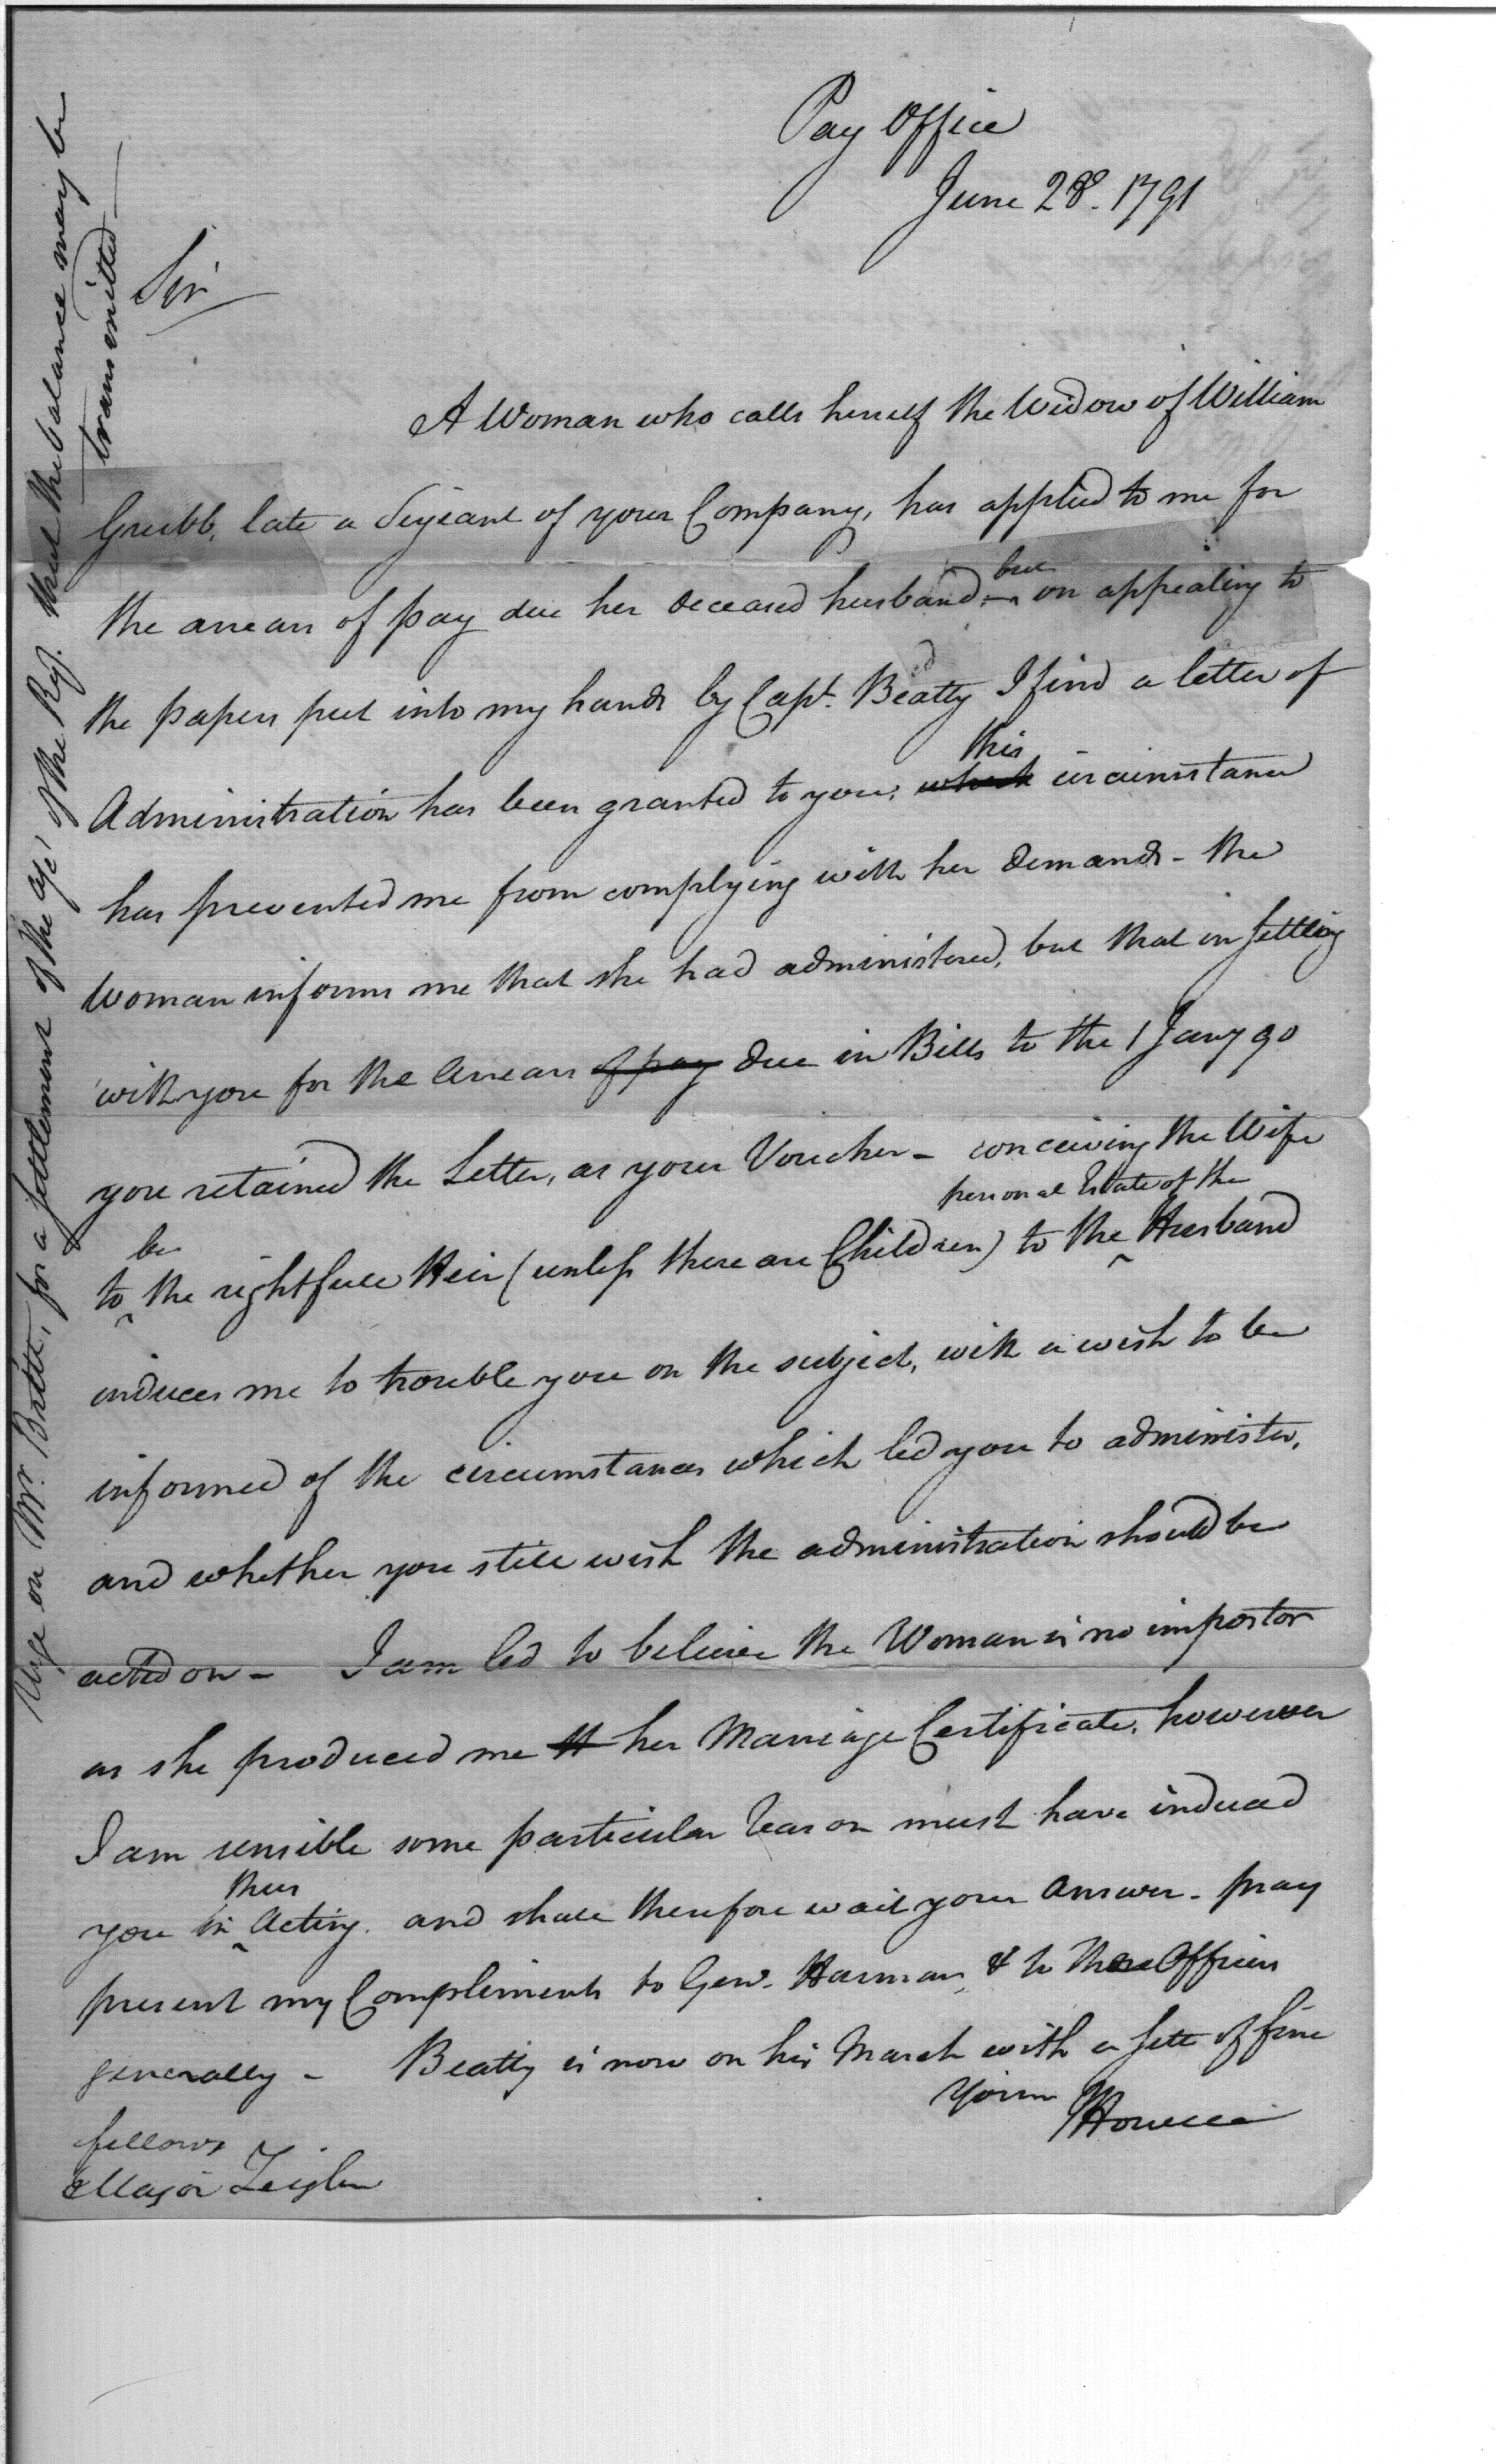 Pay Office
June 28. 1791
Sir
A Woman who calls herself the Widow of William
Grubb, late a Serjeant of your Company, has applied to me for
the arrears of pay due her deceased husband - but on appealing to
the papers put into my hands by Capt. Beatty I find a letter of
Administration has been granted to you; which this circumstance
has prevented me from complying with her demands - the
Woman informs me that she had administered, but that in settling
with you for the arrears of pay due in Bills to the 1 Jany 90
you retained the Letter, as your Voucher - conceiving the Wife
to be the rightfull Heir (unless there are Children) to the personal Estate of the Husband
induces me to trouble you on the subject, with a wish to be
informed of the circumstances which led you to administer,
and whether you still wish the administration should be
acted on - I am led to believe the Woman is no impostor
as she produced me her Marriage Certificate, however
I am sensible some particular reason must have induced
you in thus Acting. and shall therefore wait your answer - pray
present my Compliments to Genl. Harmar, & to the Officers
generally - Beatty is now on his March with a sett of fine
fellows
Yours
JHowell
Major Zeigler
Urge on Mr. Britt, for a settlement of the a/cs of the Reg. that the balance may be
transmitted